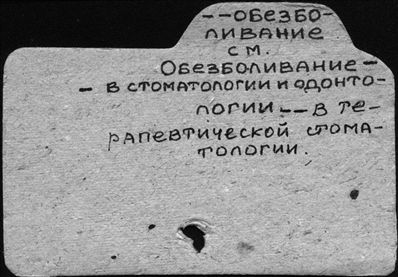 --ОБЕЗБО-
ЛИВАНИЕ
СМ.
ОБЕЗБОЛИВАНИЕ-
- В СТОМАТОЛОГИИ И ОДОНТО-
ЛОГИИ -- В ТЕ-
РАПЕВТИЧЕСКОЙ СТОМА-
ТОЛОГИИ.